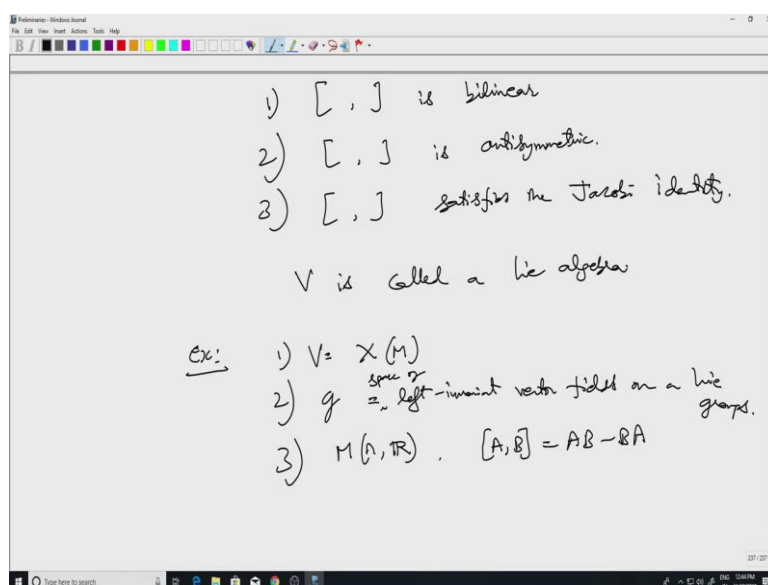 Preliminaries - Windows Journal
File Edit View Insert Actions Tools Help
1) [ , ] is bilinear
2) [ , ] is antisymmetric.
3) [ , ] satisfies the Jacobi identity.
V is called a Lie algebra
Ex: 1) V = X(M)
2) g = space of left-invariant vector fields on a Lie
groups.
3) M(n, R). [A, B] = AB - BA
237 / 237
Type here to search
ENG 12:44 PM